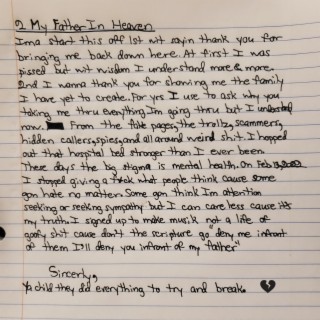 2 My Father In Heaven
Imma start this off 1st wit sayin thank you for
bringing me back down here. At first I was
pissed but wit wisdom I understand more & more.
2nd I wanna thank you for showing me the family
I have yet to create. For yrs I use to ask why you
taking me thru everything Im going thru but I understand
now. From the fake pages, the trollz, scammers,
hidden callers, spies, and all around weird shit. I hopped
out that hospital bed stronger than I ever been.
These days the big stigma is mental health. On Feb 13,
I stopped giving a fuck what people think cause some
gon hate no matter. Some gon think Im attention
seeking or seeking sympathy but I can care less cause its
my truth. I signed up to make musik not a life of
goofy shit cause don't the scripture go "deny me infront
of them I'll deny you infront of my "father"
Sincerly,
Ya child they did everything to try and break. 💔